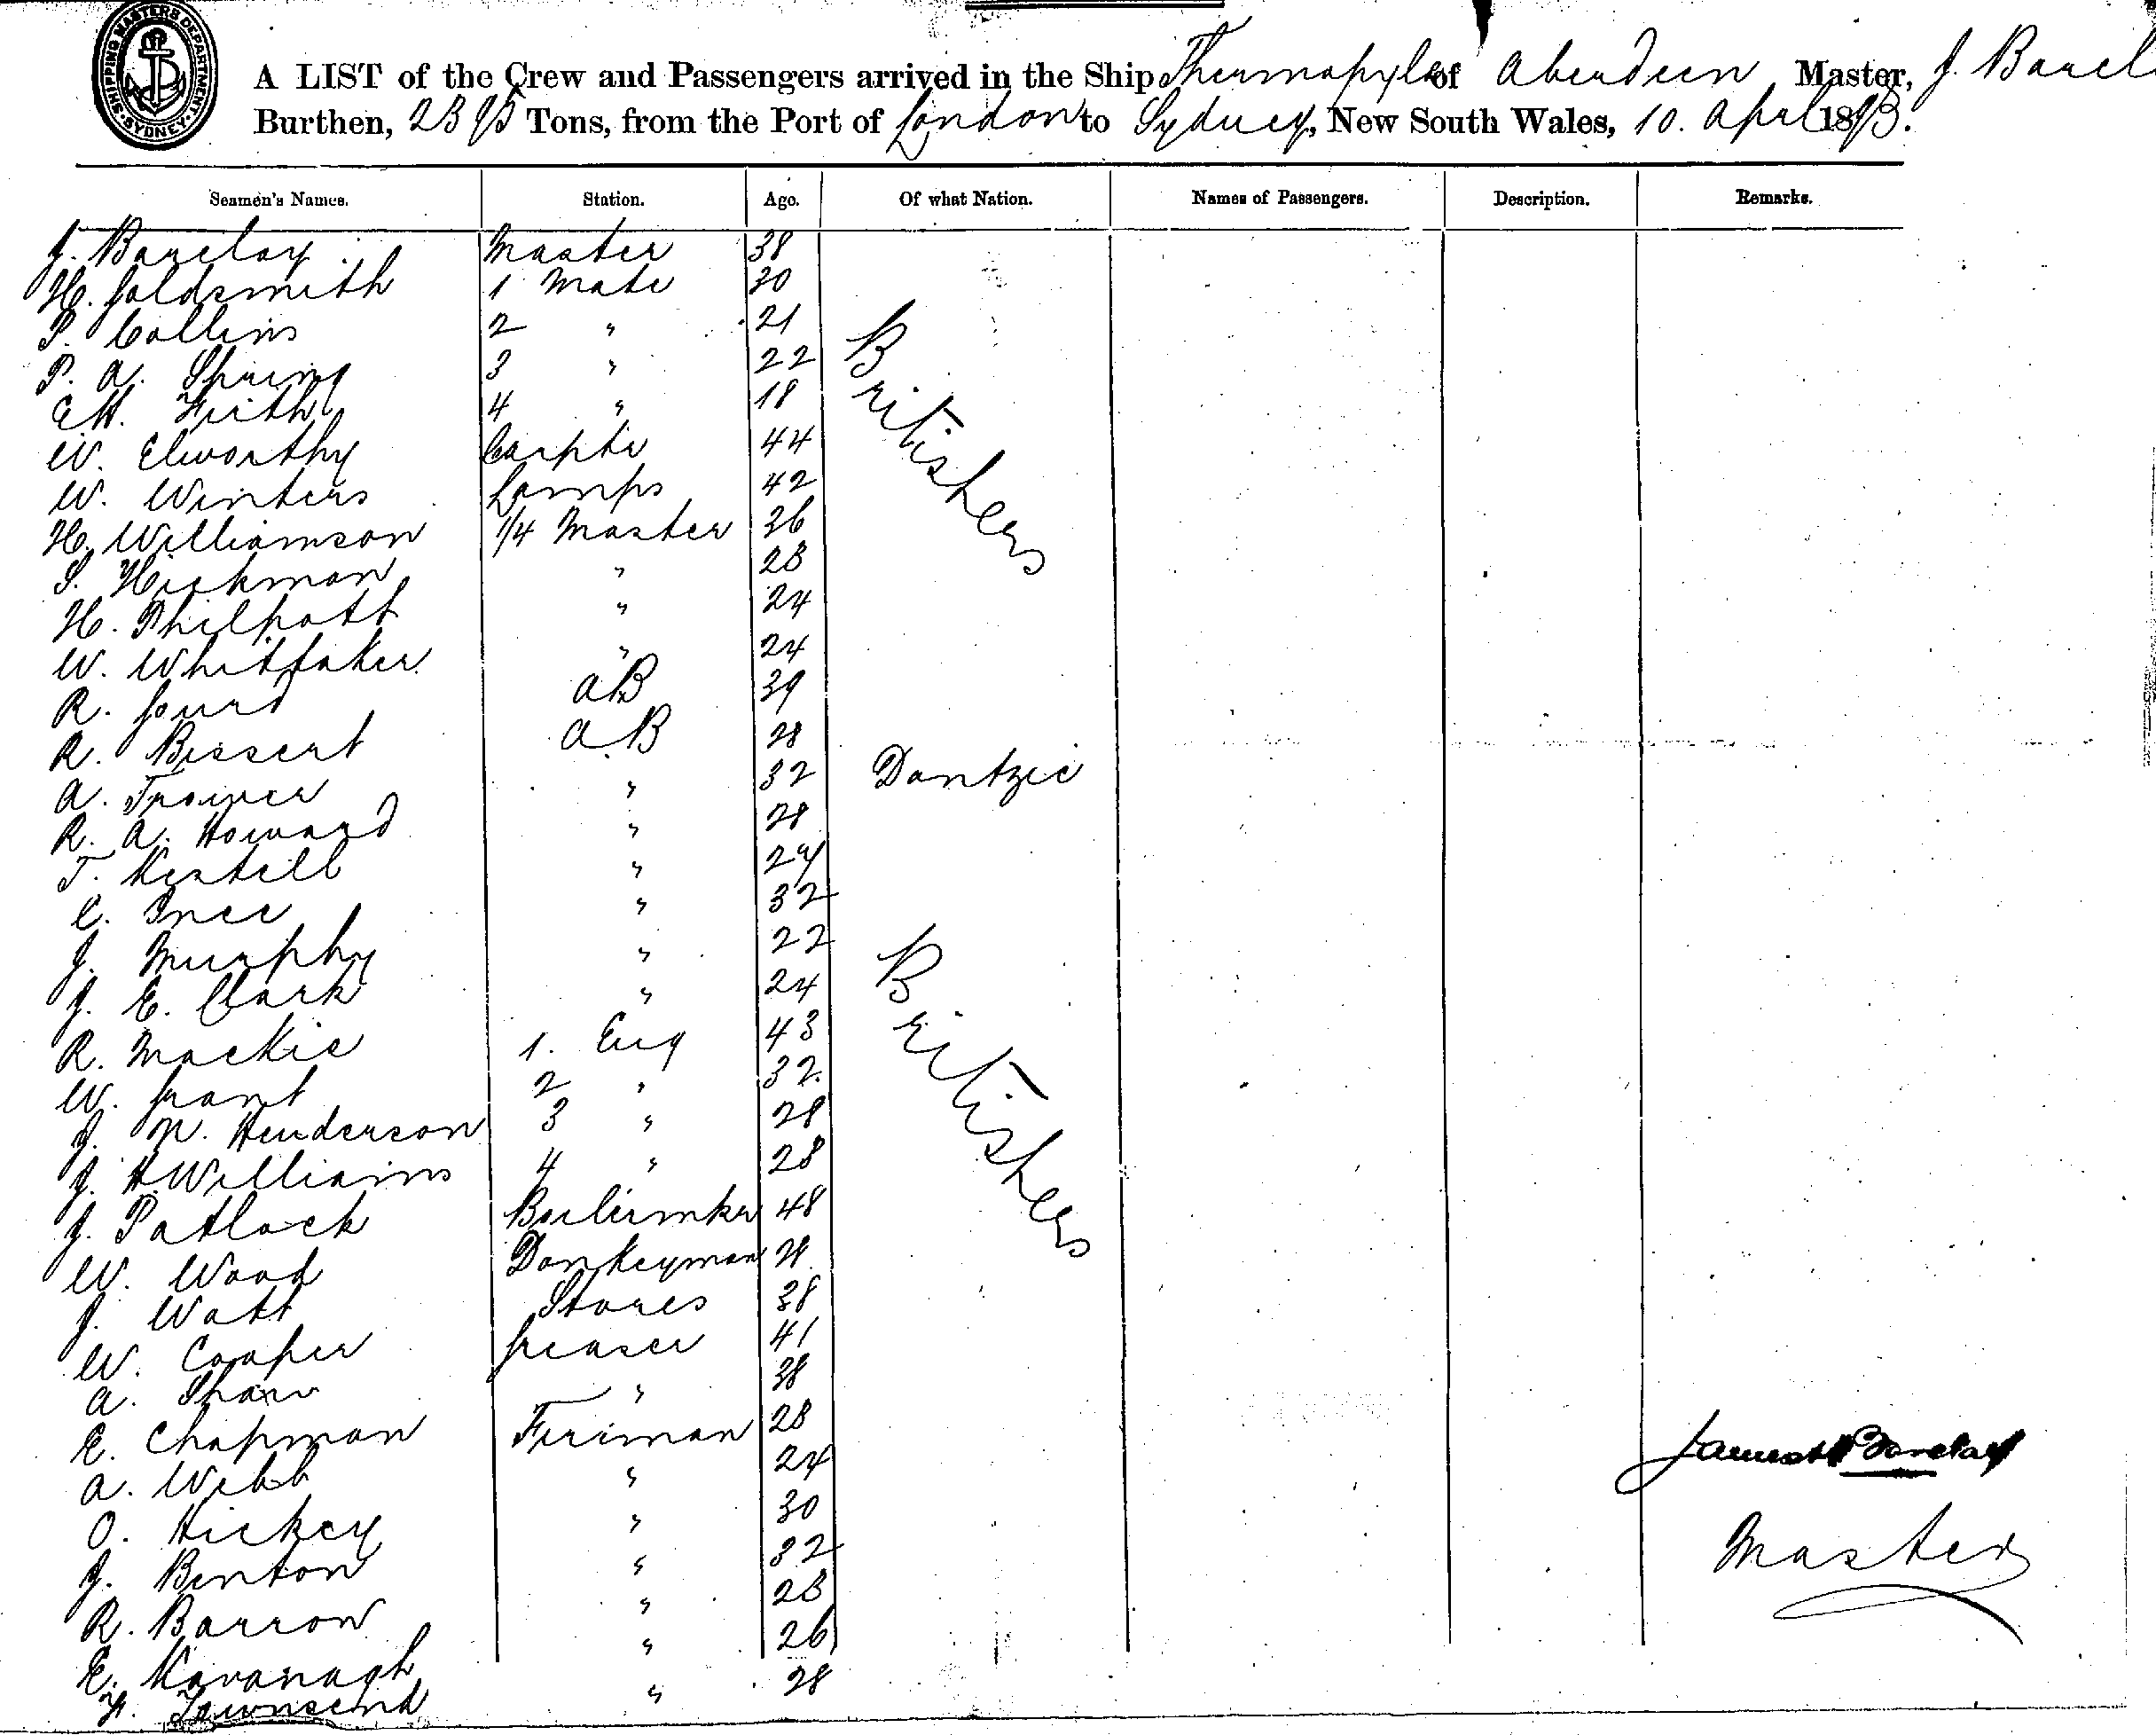 SHIPPING MASTERS DEPARTMENT SYDNEY
A LIST of the Crew and Passengers arrived in the Ship Thermopylae of Aberdeen Master, J. Barcl
Burthen, Tons, from the Port of London to Sydney, New South Wales, 10. April 1893.
Seamen's Names. Station. Age. Of what Nation. Names of Passengers. Description. Remarks.
J. Barclay Master 38
H. Goldsmith 1 Mate 30
P. Collins 2 " 21
P. A. Spring 3 " 22
E H. Firth 4 " 18
W. Elworthy Carptr 44
W. Winters Lamps 42
Britishers
H. Williamson 1/4 Master 36
S. Hickman " 23
H. Philpott " 24
W. Whittaker " 24
R. Gourd AB 39
R. Bissert AB 28
A. " 32 Dantzic
R. A. Howard " 28
T. Kestell "
C. Ince " 32
J. Murphy " 22
J. E. Clark " 24
R. Mackie 1. Eng 43
W. Grant 2 " 32
Britishers
J. N. Henderson 3 " 28
J. H Williams 4 " 28
J. Patlock Boilermkr 48
W. Wood Donkeyman
J. Watt Stores 38
W. Cooper Greaser 41
A. Shaw " 38
E. Chapman Fireman 23
James Barclay
A. Webb " 24
O. Hickey " 30
J. Benton " 32
Master
R. Barrow " 23
E. Kavanagh " 26
Townsend " 28